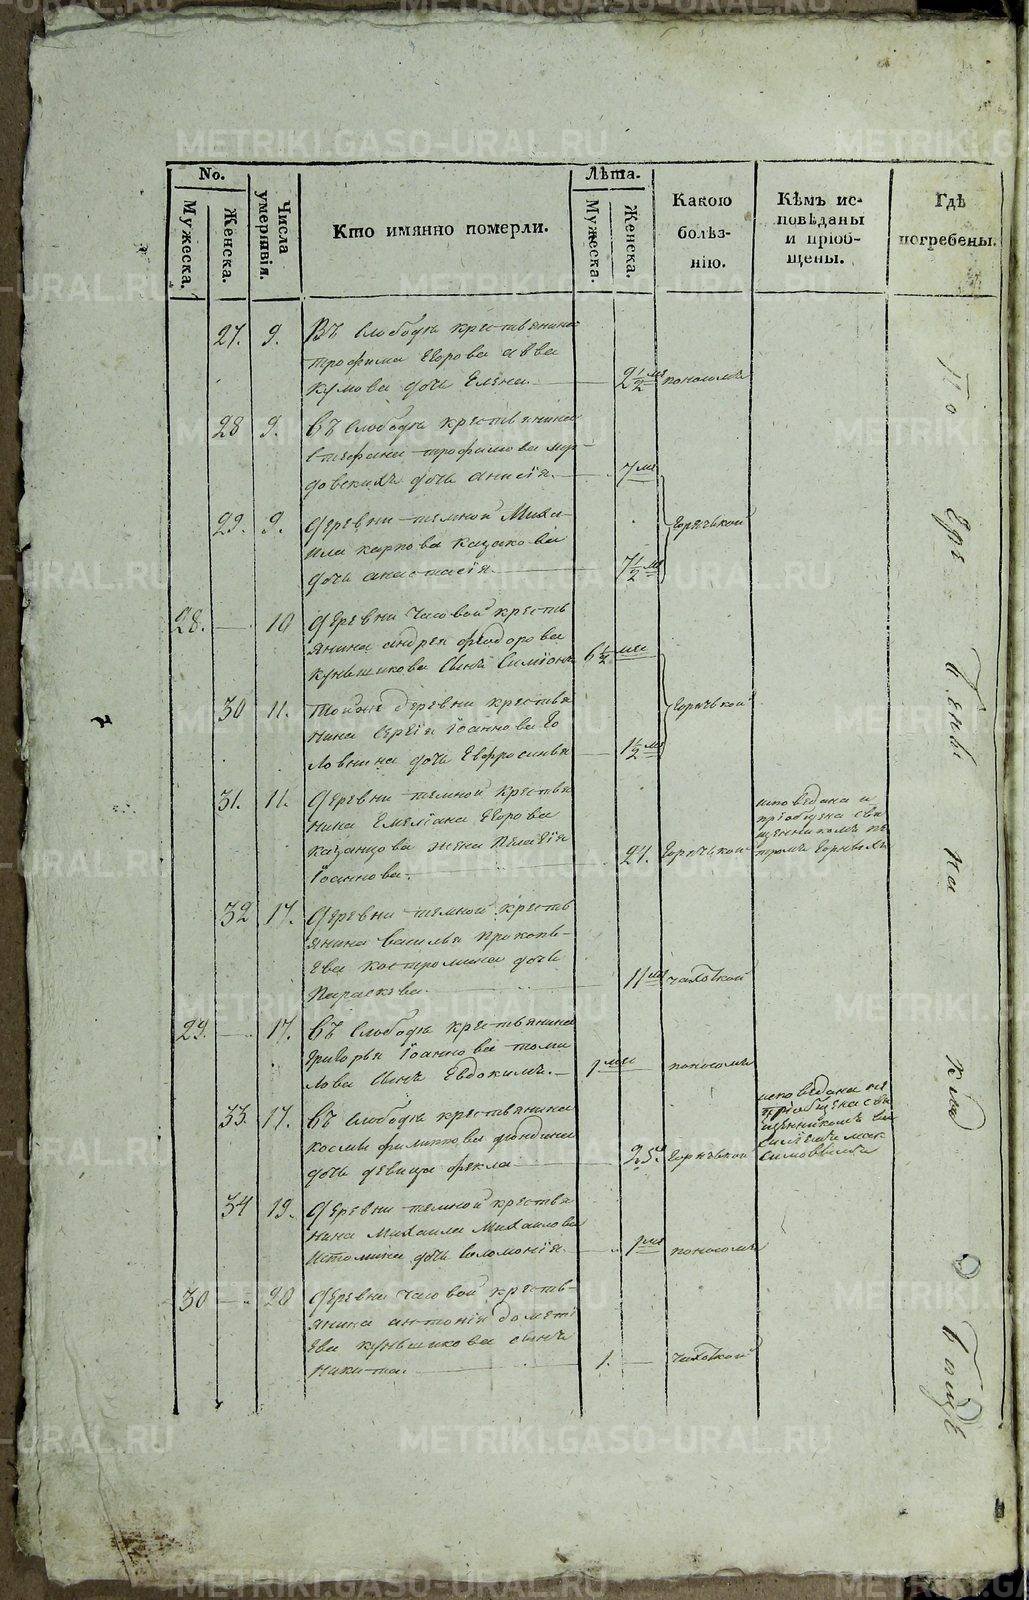 METRIKI.GASO-URAL.RU
No.
Мужеска.
Женска.
Числа умерiявiя.
Кто имянно померли.
Лѣта.
Мужеска.
Женска.
Какою болѣз-
нiю.
Кѣмъ ис-
повѣданы
и прiоб-
щены.
Гдѣ
погребены.
27. 9. Въ Слободѣ крестьянина
трофима Егорова авва
кумова дочь Елена. 2 1/2 ме поносомъ
28 9. Въ Слободѣ крестьянина
стефана трофимова
дочь анисiя. 7 ме
29. 9. деревни темной Миха-
ила карпова казакова
дочь анастасiя. 7 1/2 ме горячькой
28. 10 деревни Часовой кресть
янина андрея феодорова
кукшикова сынъ Симiонъ 6 1/2 ме
30 11. тойже деревни крестья
нина Сергiя Iоаннова Го
ловнина дочь Евфросинья 1 1/2 ме горячькой
31. 11. деревни темной крестья
нина Емелiана Егорова
казанцова жена Пелагiя
Iоаннова. 24. горячькой
исповедана и
прiобщена свя
щенникомъ пе
тромъ
32 17. деревни темной кресть
янина василья прокопь-
ева костромина дочь
Параскева. 11 ме чахоткой
29. 17. Въ Слободѣ крестьянина
григорья Iоаннова томи
лова сынъ Евдокимъ. 1 ме поносомъ
33. 17. Въ Слободѣ крестьянина
космы филиппова
дочь девица фекла 25. горячькой
исповедана и
прiобщена свя
щенникомъ ва
силiемъ мак
симовымъ
34 19. деревни темной крестья
нина Михаила Михаилова
истомина дочь соломонiя. 1 ме поносомъ
30 20 деревни часовой кресть-
янина антонiя дометi
ева кукшикова сынъ
Никита. 1. чахоткой
На кла д би щѣ